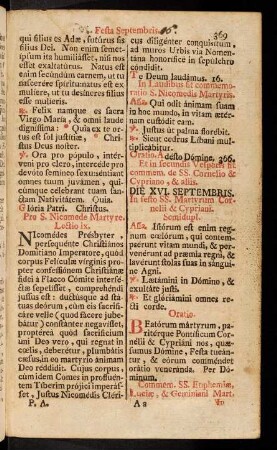 Festa Septembris.
369
qui filius es Adæ, futurus sis
filius Dei. Non enim semet-
ipsum ita humiliasset, nisi nos
esset exaltaturus. Natus est
enim secundùm carnem, ut tu
nascerére spiritu: natus est ex
muliere, ut tu desineres filius
esse mulieris.
℟. Felix namque es sacra
Virgo Maria, & omni laude
dignissima: * Quia ex te or-
tus est sol justitiæ, * Chri-
stus Deus noster.
℣. Ora pro pópulo, intér-
veni pro clero, intercéde pro
devóto femíneo sexu: séntiant
omnes tuum juvámen, qui-
cúmque célebrant tuam san-
ctam Nativitátem. Quia.
Glória Patri. Christus.
Pro S. Nicomede Martyre.
Lectio ix.
NIcomédes Présbyter,
persequénte Christiános
Domitiáno Imperatóre, quòd
corpus Felículæ vírginis pro-
pter confessiónem Christiánæ
fídei à Flacco Cómite interfé-
ctæ sepelísset, comprehendi
jussus est: ductúsque ad sta-
tuas deórum, cùm eis sacrifi-
cáre vellet (quòd fácere jube-
bátur) constánter negavísset,
proptereà quòd sacrifícium
uni Deo vero, qui regnat in
cœlis, deberétur, plumbátis
cæsus, in eo martyrio ánimam
Deo réddidit. Cujus corpus,
cùm idem Comes in profluén-
tem Tíberim prójici imperás-
set, Justus Nicomédis Cléri-
P. A.
cus diligénter conquisítum,
ad muros Urbis via Nomen-
tána honorífice in sepúlchro
cóndidit.
Te Deum laudámus. 16.
In Laudibus fit commemo-
ratio S. Nicomedis Martyris.
Aña. Qui odit ánimam suam
in hoc mundo, in vitam ætér-
nam custódit eam.
℣. Justus út palma florébit.
℟. Sicut cedrus Líbani mul-
tiplicábitur.
Oratio. Adésto Dómine. 266.
Et in secundis Vesperis fit
commem. de SS. Cornelio &
Cypriano, & aliis.
DIE XVI. SEPTEMBRIS.
In festo SS. Martyrum Cor-
nelii & Cypriani.
Semidupl.
Aña. Istórum est enim reg-
num cœlórum, qui contemp-
sérunt vitam mundi, & per-
venérunt ad præmia regni, &
lavérunt stolas suas in sánguine
Agni.
℣. Lætámini in Dómino, &
exultáte justi.
℟. Et gloriámini omnes re-
cti corde.
Oratio.
BEatórum mártyrum, pa-
ritérque Pontíficum Cor-
nélii & Cypriáni nos, quǽ-
sumus Dómine, Festa tueán-
tur, & eórum comméndet
orátio veneránda. Per Dó-
minum.
Commem. SS. Euphemiæ,
Luciæ, & Geminiani Mart.
A a